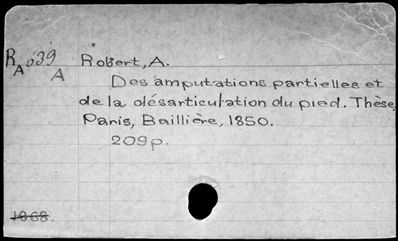 RA 639 A
Robert, A.
Des amputations partielles et
de la désarticulation du pied. Thèse,
Paris, Baillière, 1850.
209p.
1868